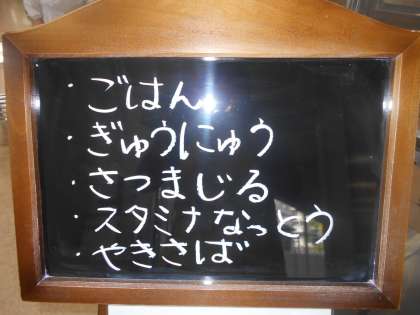 ・ごはん
・ぎゅうにゅう
・さつまじる
・スタミナなっとう
・やきさば